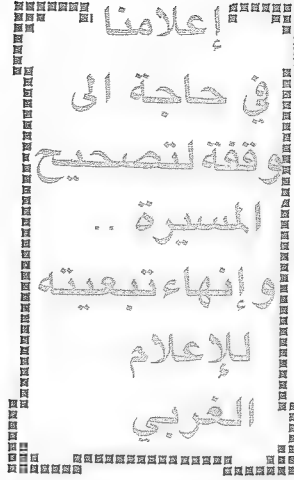 إعلامنا
في حاجة الى
وقفة لتصحيح
المسيرة ..
و إنهاء تبعيته
للإعلام
الغربي